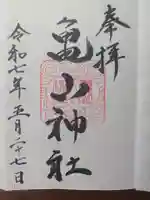 奉拝
亀山神社
令和七年五月二十七日